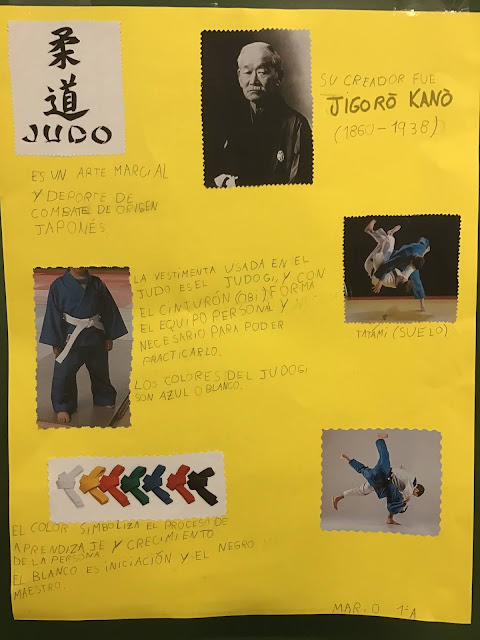 柔
道
JUDO
SU CREADOR FUE
JIGORŌ KANŌ
(1860-1938)
ES UN ARTE MARCIAL
Y DEPORTE DE
COMBATE DE ORIGEN
JAPONÉS
LA VESTIMENTA USADA EN EL
JUDO ES EL JUDOGI, Y CON
EL CINTURÓN (OBI) FORMA
EL EQUIPO PERSONAL Y
NECESARIO PARA PODER
PRACTICARLO.
LOS COLORES DEL JUDOGI
SON AZUL O BLANCO.
TATAMI (SUELO)
EL COLOR SIMBOLIZA EL PROCESO DE
APRENDIZAJE Y CRECIMIENTO
DE LA PERSONA.
EL BLANCO ES INICIACIÓN Y EL NEGRO
MAESTRO.
MARIO 1ºA